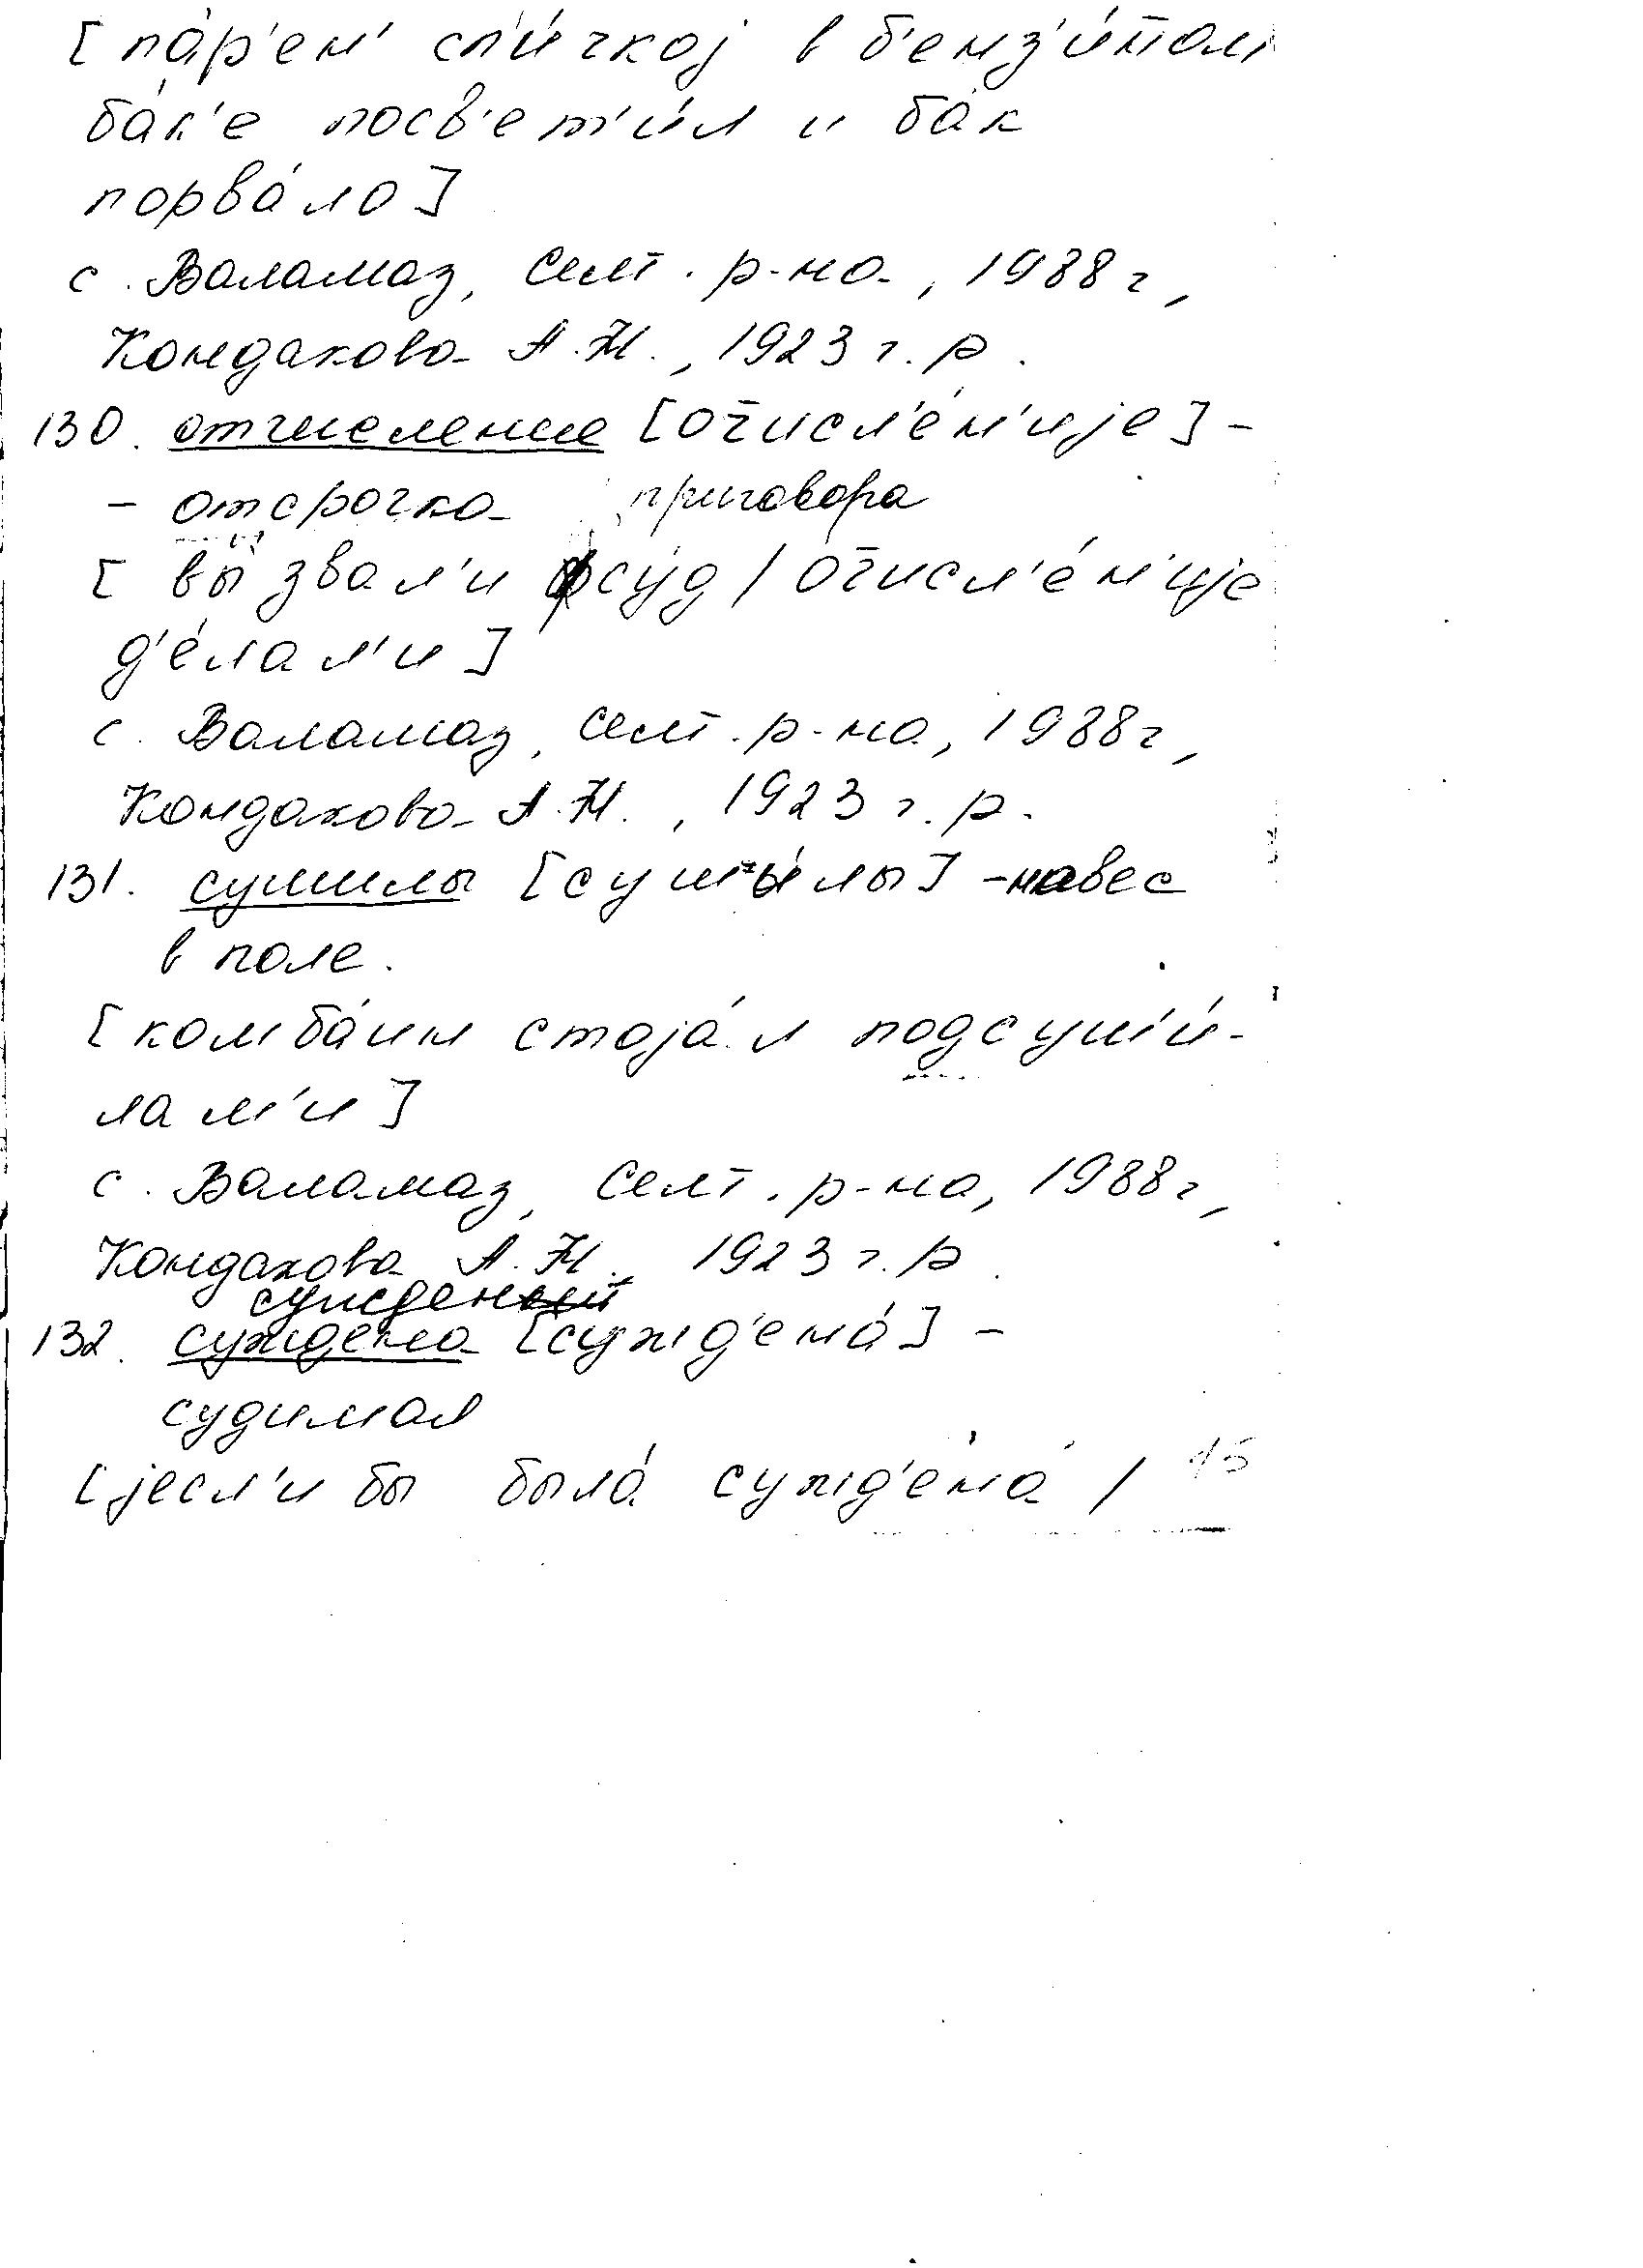 [па́р'ен' сп'и́чкој в б'енз'и́новом
ба́к'е посв'ет'и́л и ба́к
порва́ло]
с. Валамаз, Селт. р-на, 1988 г,
Кондакова А.Н., 1923 г.р.
130. отчисление [оч̄исл'е́н'ијe] -
- отсрочка приговора
[вы́звал'и суд / оч̄исл'е́н'ије
д'е́лал'и]
с. Валамаз, Селт. р-на, 1988 г,
Кондакова А.Н., 1923 г.р.
131. сушилы [сушы́лы] - навес
в поле.
[комба́ин стоја́л подсуши́-
лам'и]
с. Валамаз, Селт. р-на, 1988 г,
Кондакова А.Н., 1923 г.р.
132. суждена [сужд'ена́] -
судимая
[јесл'и бы была́ сужд'ена́ / 45